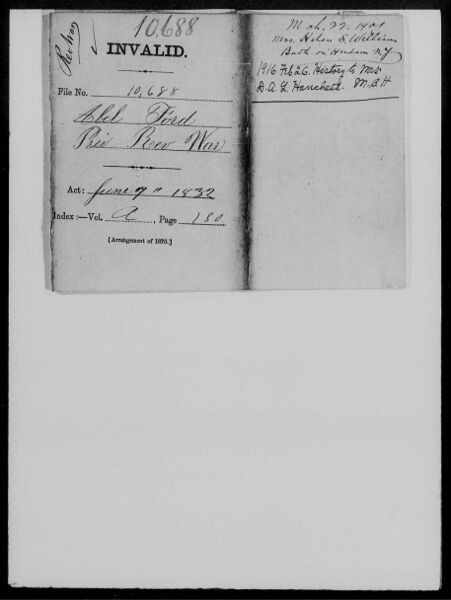 Rev War
10,688
INVALID.
File No. 10,688
Abel Ford
Priv Rev War
Act: June 7" 1832
Index:—Vol. A, Page 130
[Arrangement of 1870.]
Mch. 22. 1901
Mrs. Helen S. William
Bath on Hudson N.Y
1916 Feb 26. History to Mrs
D. A. L. Hanchett. M.B.H